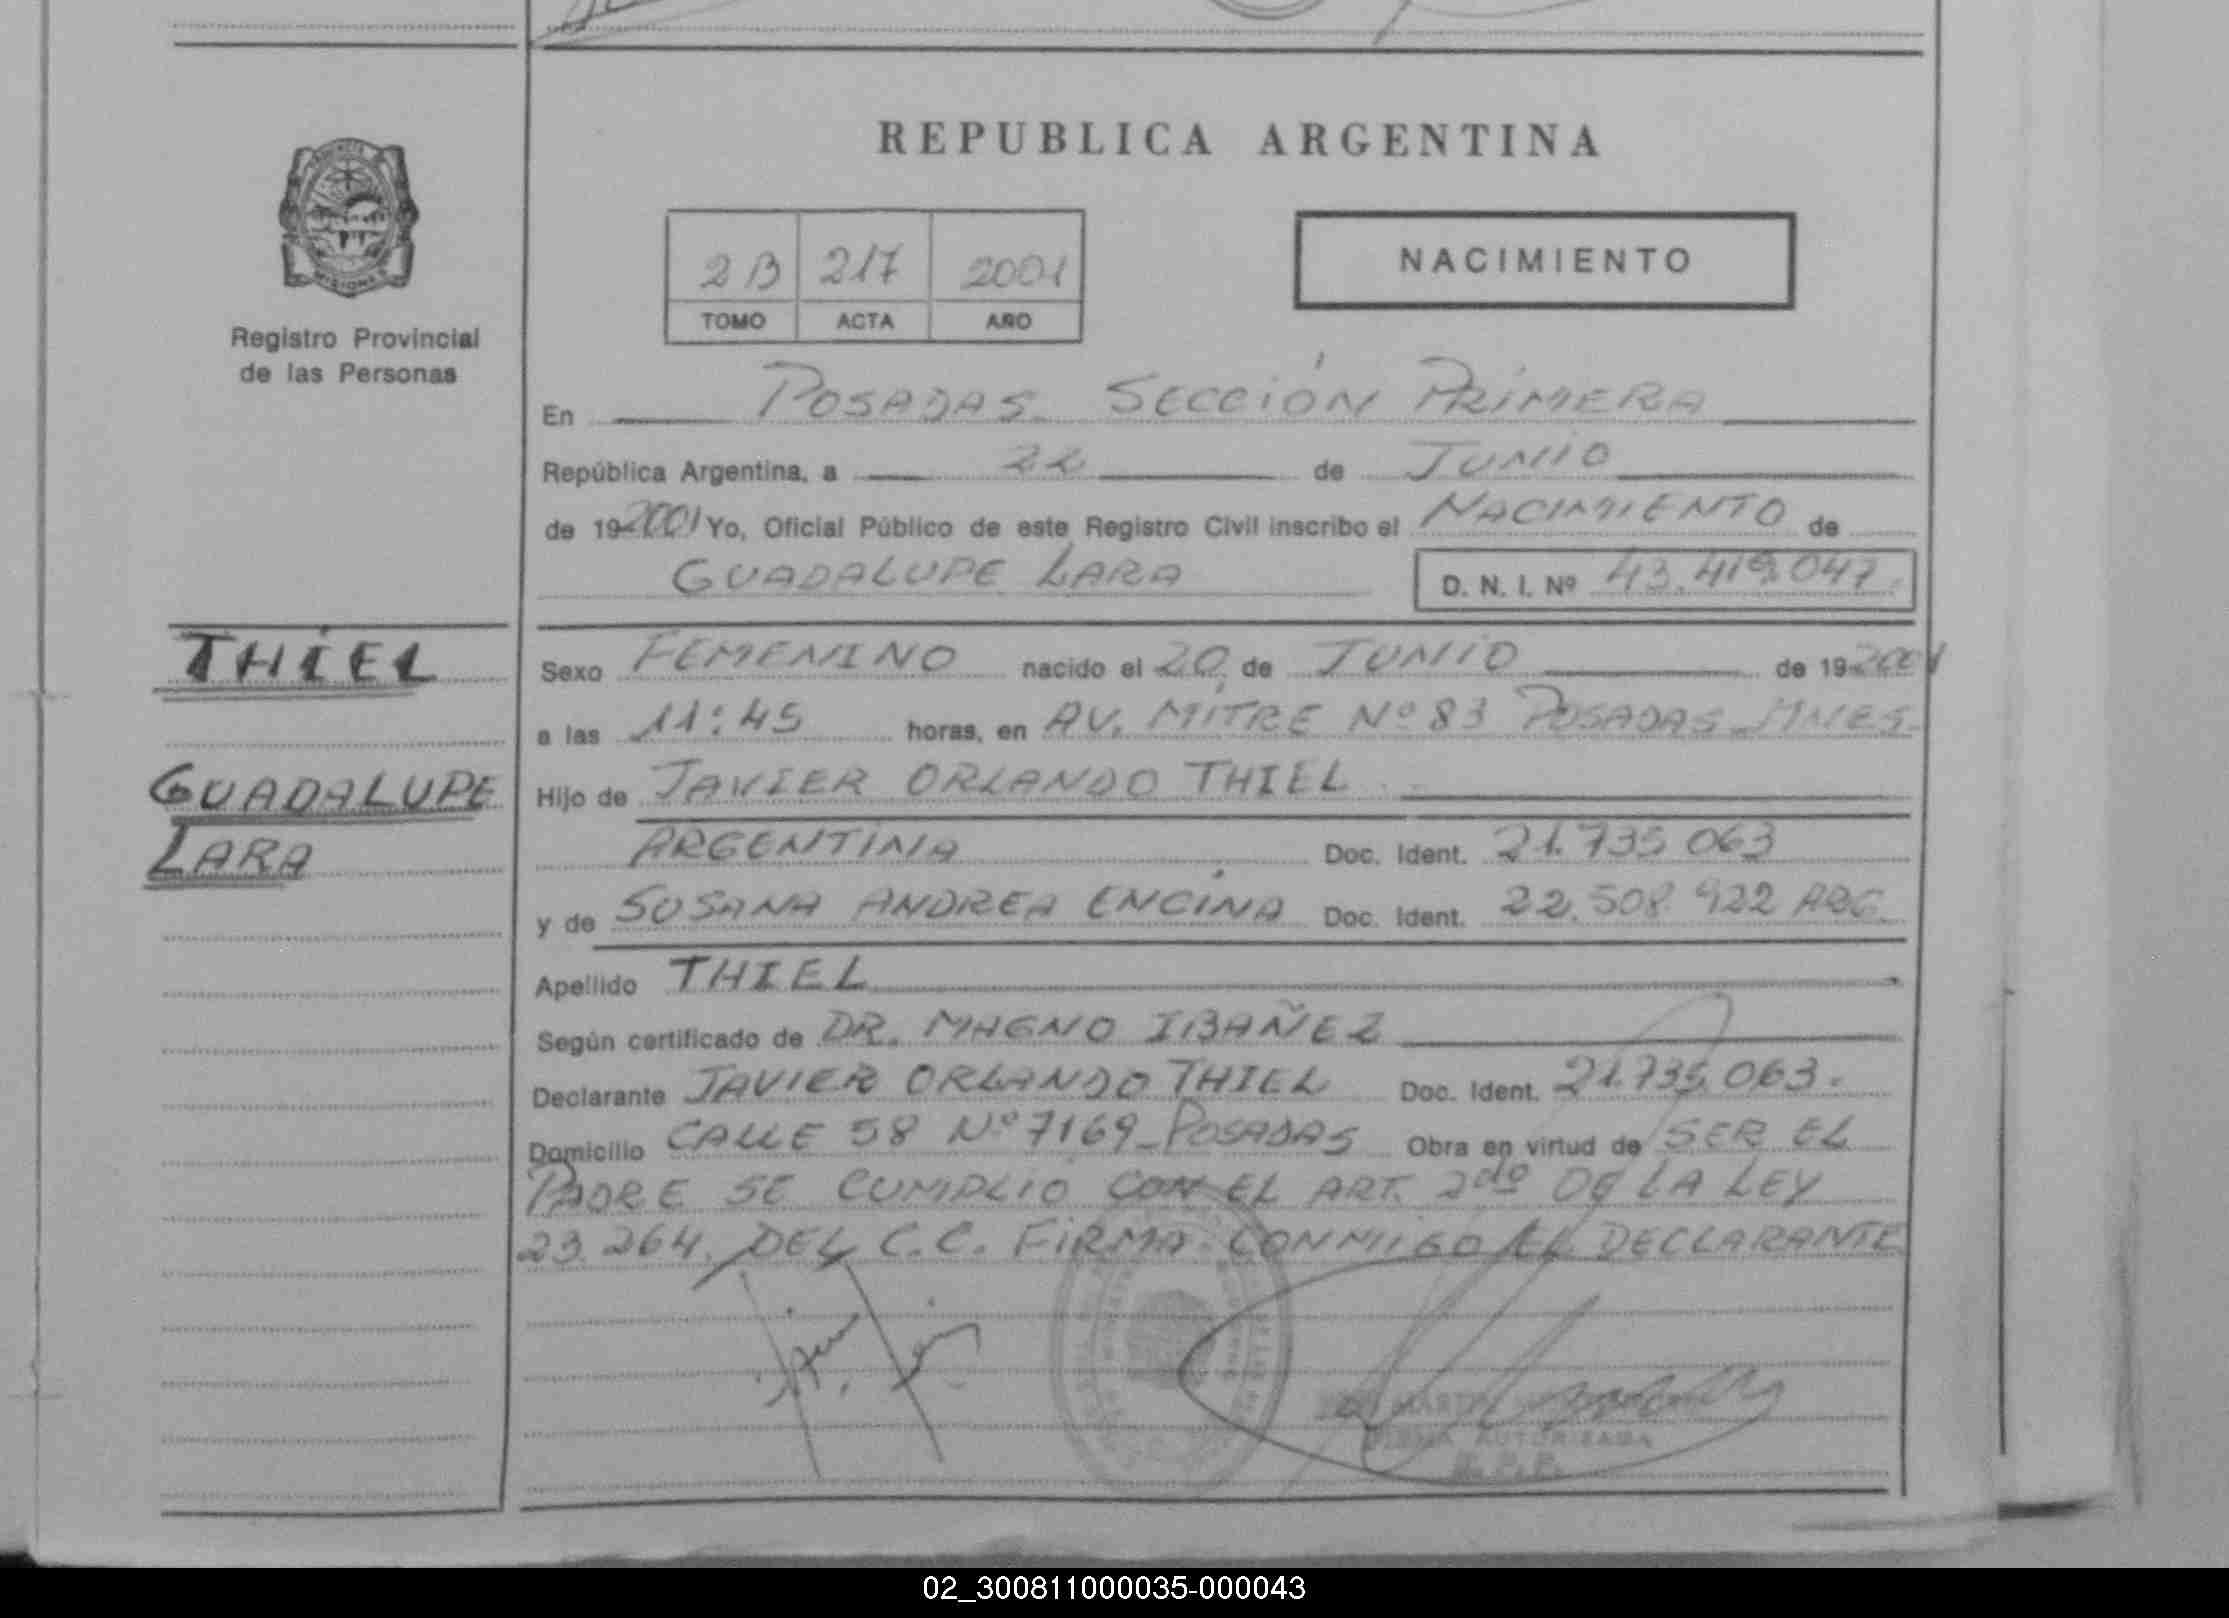 REPUBLICA ARGENTINA
NACIMIENTO
2B 217 2001
TOMO ACTA AÑO
Registro Provincial
de las Personas
En POSADAS. SECCIÓN PRIMERA
República Argentina, a 22 de JUNIO
de 19 2001 Yo, Oficial Público de este Registro Civil inscribo el NACIMIENTO de
GUADALUPE LARA D. N. I. Nº 43.419.047.
THIEL
GUADALUPE
LARA
Sexo FEMENINO nacido el 20 de JUNIO de 19 2001
a las 11:45 horas, en AV. MITRE Nº 83 POSADAS MNES.
Hijo de JAVIER ORLANDO THIEL
ARGENTINA Doc. Ident. 21.735.063
y de SUSANA ANDREA ENCINA Doc. Ident. 22.508.922 ARG.
Apellido THIEL
Según certificado de DR. MAGNO IBAÑEZ
Declarante JAVIER ORLANDO THIEL Doc. Ident. 21.735.063.
Domicilio CALLE 58 Nº 7169 - POSADAS Obra en virtud de SER EL
PADRE SE CUMPLIO CON EL ART. 2do DE LA LEY
23.264. DEL C.C. FIRMA CONMIGO EL DECLARANTE
FIRMA AUTORIZADA
R.P.P.
02_300811000035-000043